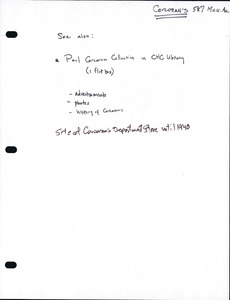 Corcoran's 587 Mass. Ave
See also:
Paul Corcoran Collection in CHC Library
(1 flat box)
- advertisements
- photos
- history of Corcoran's
Site of Corcoran's Department Store until 1948